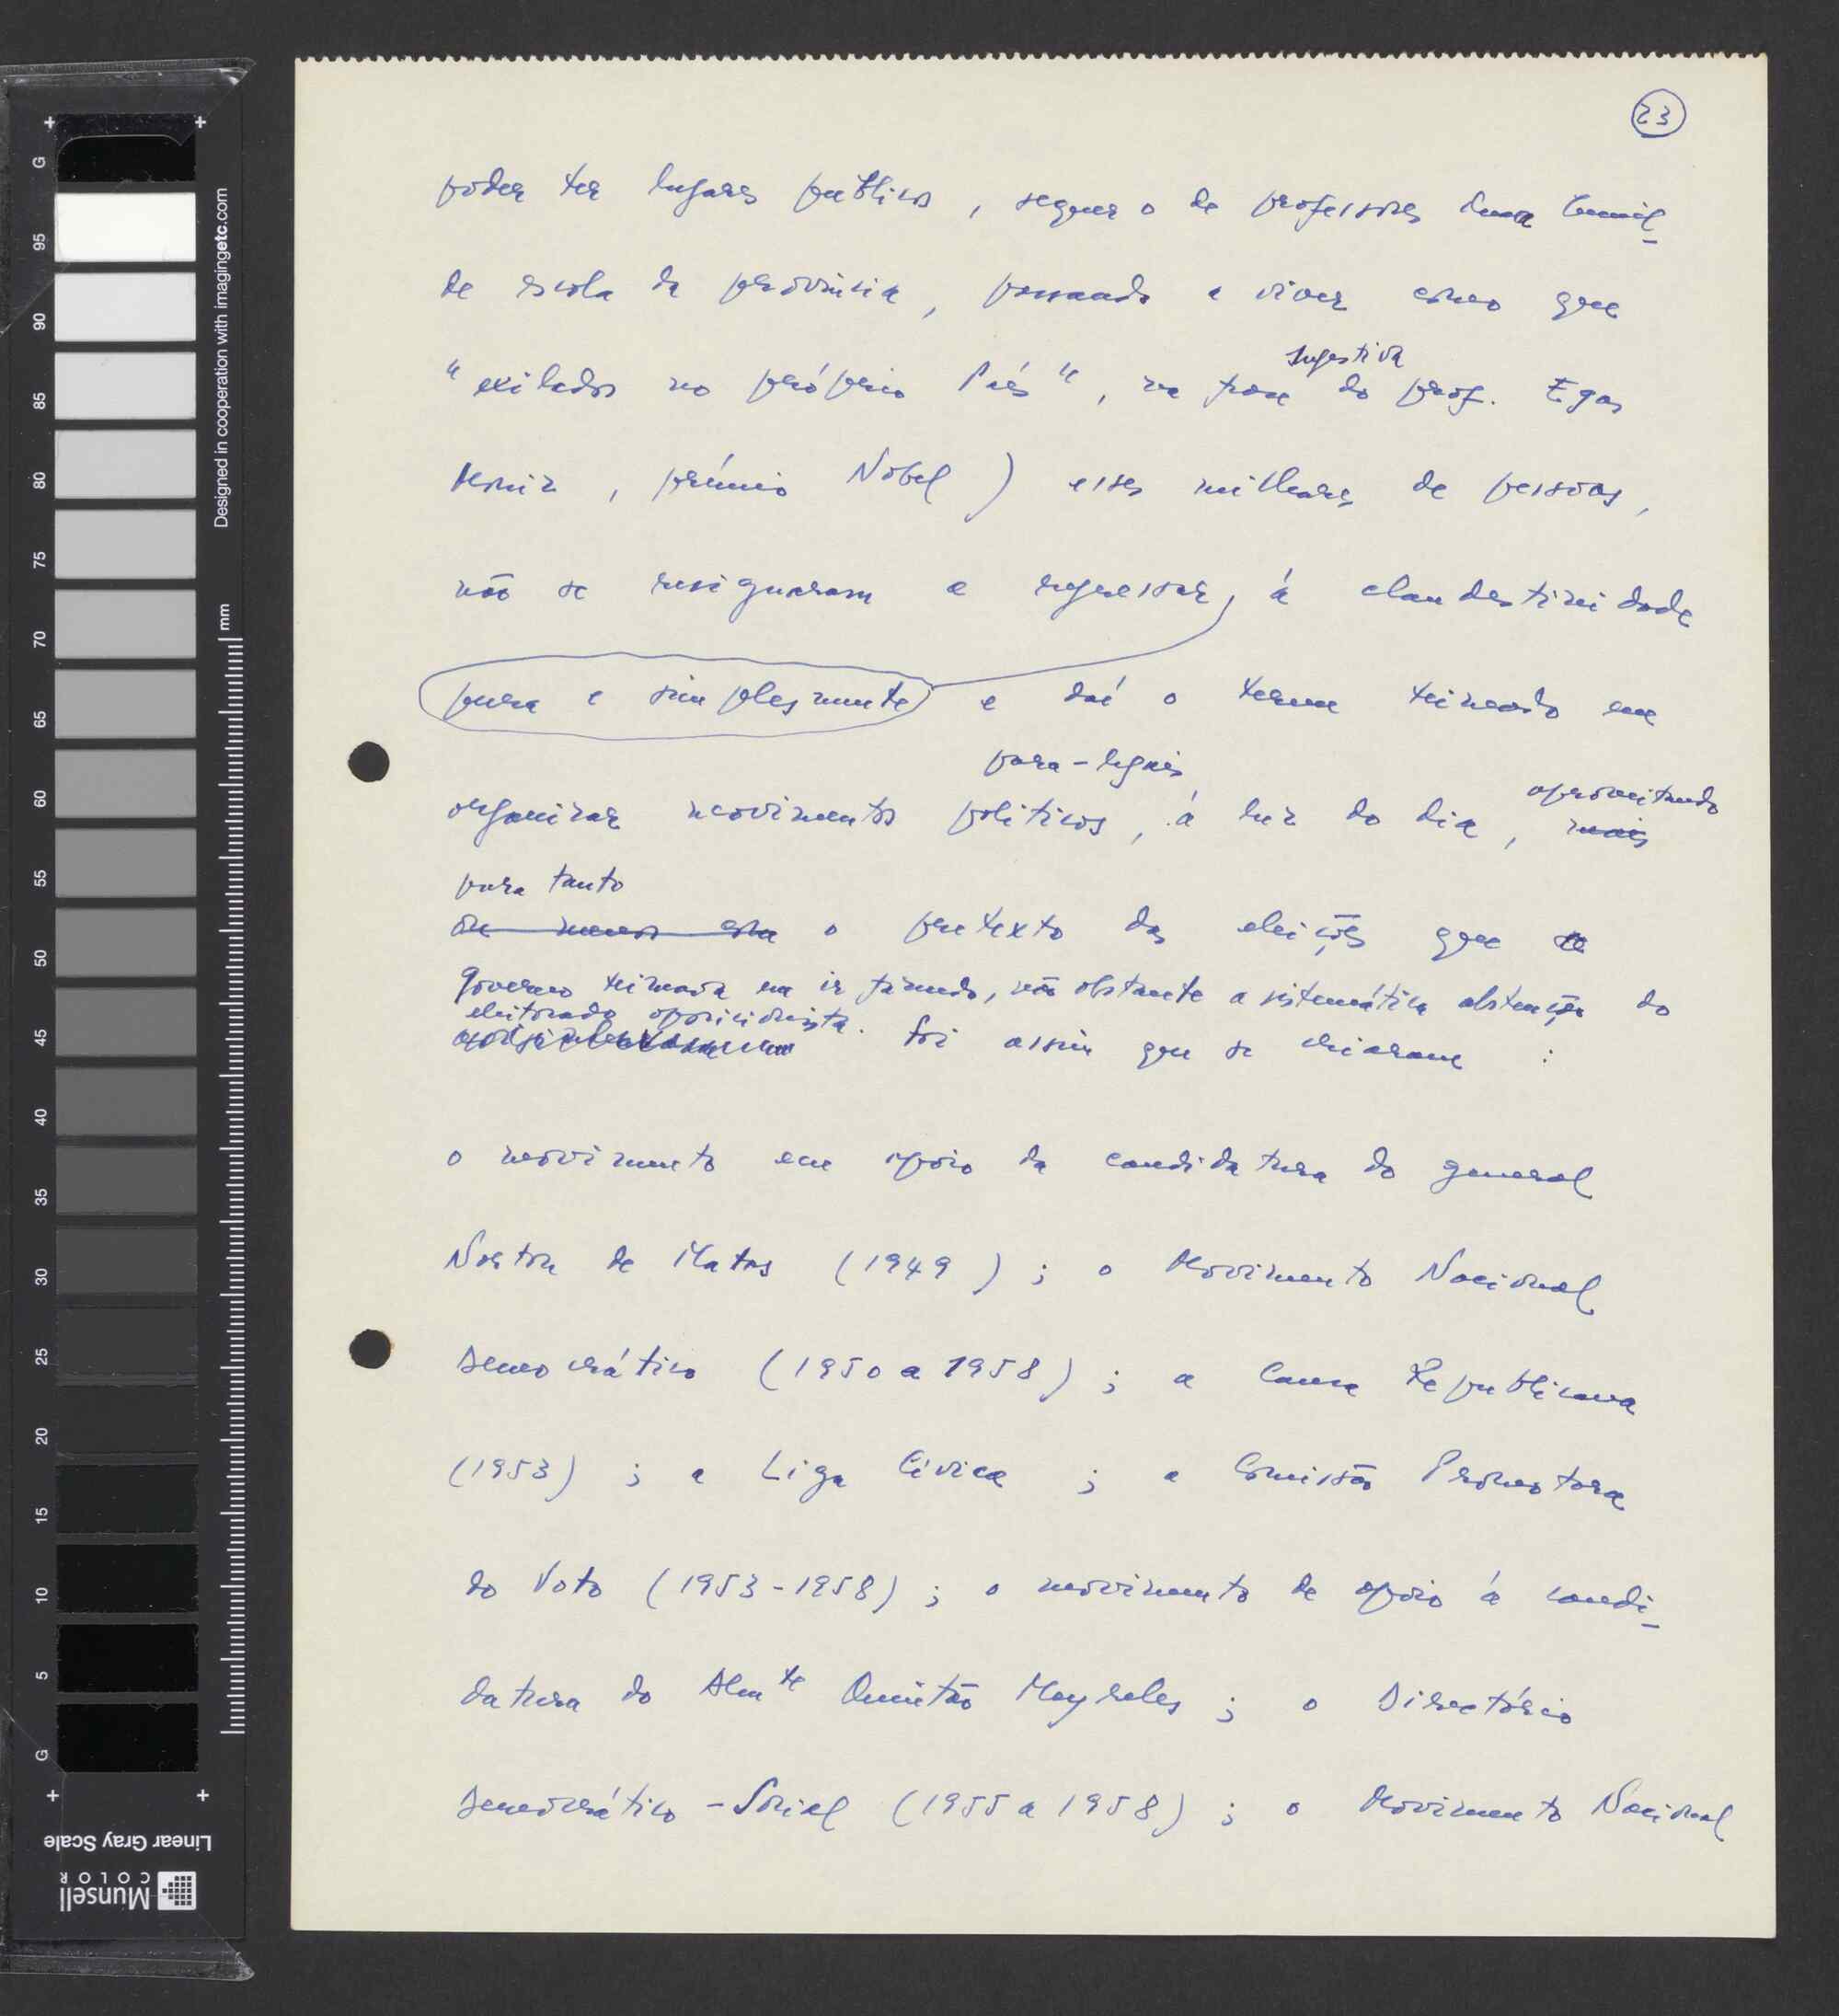 23
poder ter lugares públicos, sequer o de professores duma humil-
de escola de província, passando a viver como que
"exilados no próprio País", na frase sugestiva do prof. Egas
Moniz, prémio Nobel) esses milhares de pessoas,
não se resignaram a regressar, à clandestinidade
pura e simplesmente e daí o terem teimado em
para-legais,
organizar movimentos políticos, à luz do dia, mais aproveitando
para tanto
o pretexto das eleições que o
Governo teimava em ir fazendo, não obstante a sistemática abstenção do
eleitorado oposicionista. Foi assim que se criaram:
o movimento em apoio da candidatura do general
Norton de Matos (1949); o Movimento Nacional
Democrático (1950 a 1958); a Causa Republicana
(1953); a Liga Cívica; a Comissão Promotora
do Voto (1953-1958); o movimento de apoio à candi-
datura do Almte Quintão Meyreles; o Directório
Democrático-Social (1955 a 1958); o Movimento Nacional
Designed in cooperation with imagingetc.com
mm
G 95 90 85 80 75 70 65 60 55 50 45 40 35 30 25 20 15 10 5 G
Linear Gray Scale
Munsell
COLOR